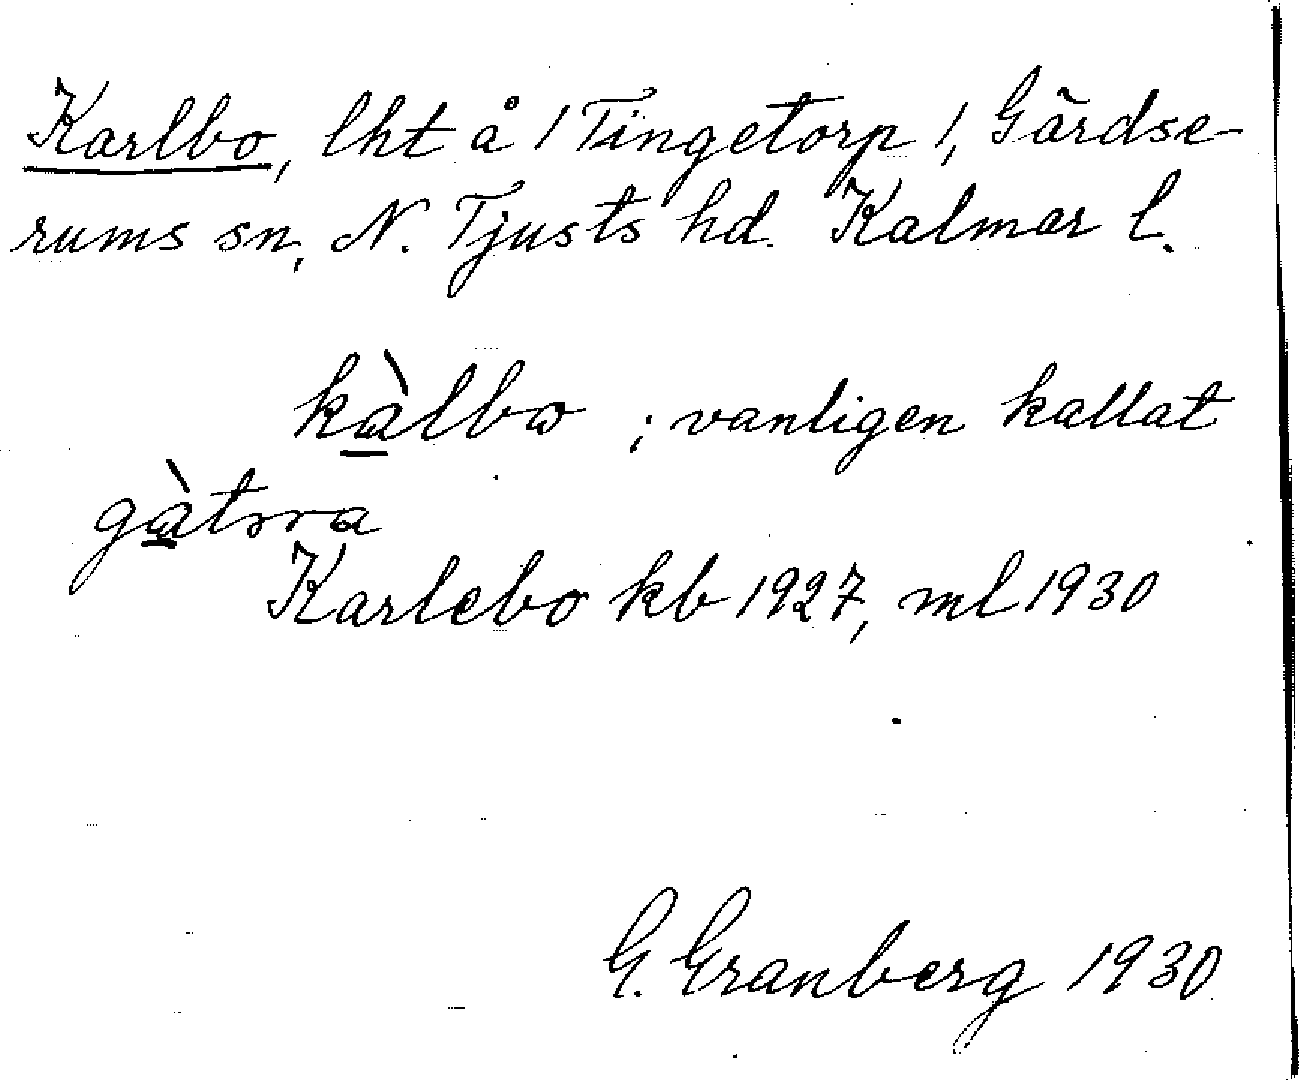 Karlbo, lht å /Tingetorp/, Gärdse-
rums sn, N. Tjusts hd. Kalmar l.
kàlbω ; vanligen kallat
gàtsra
Karlebo kb 1927, ml 1930
G. Granberg 1930